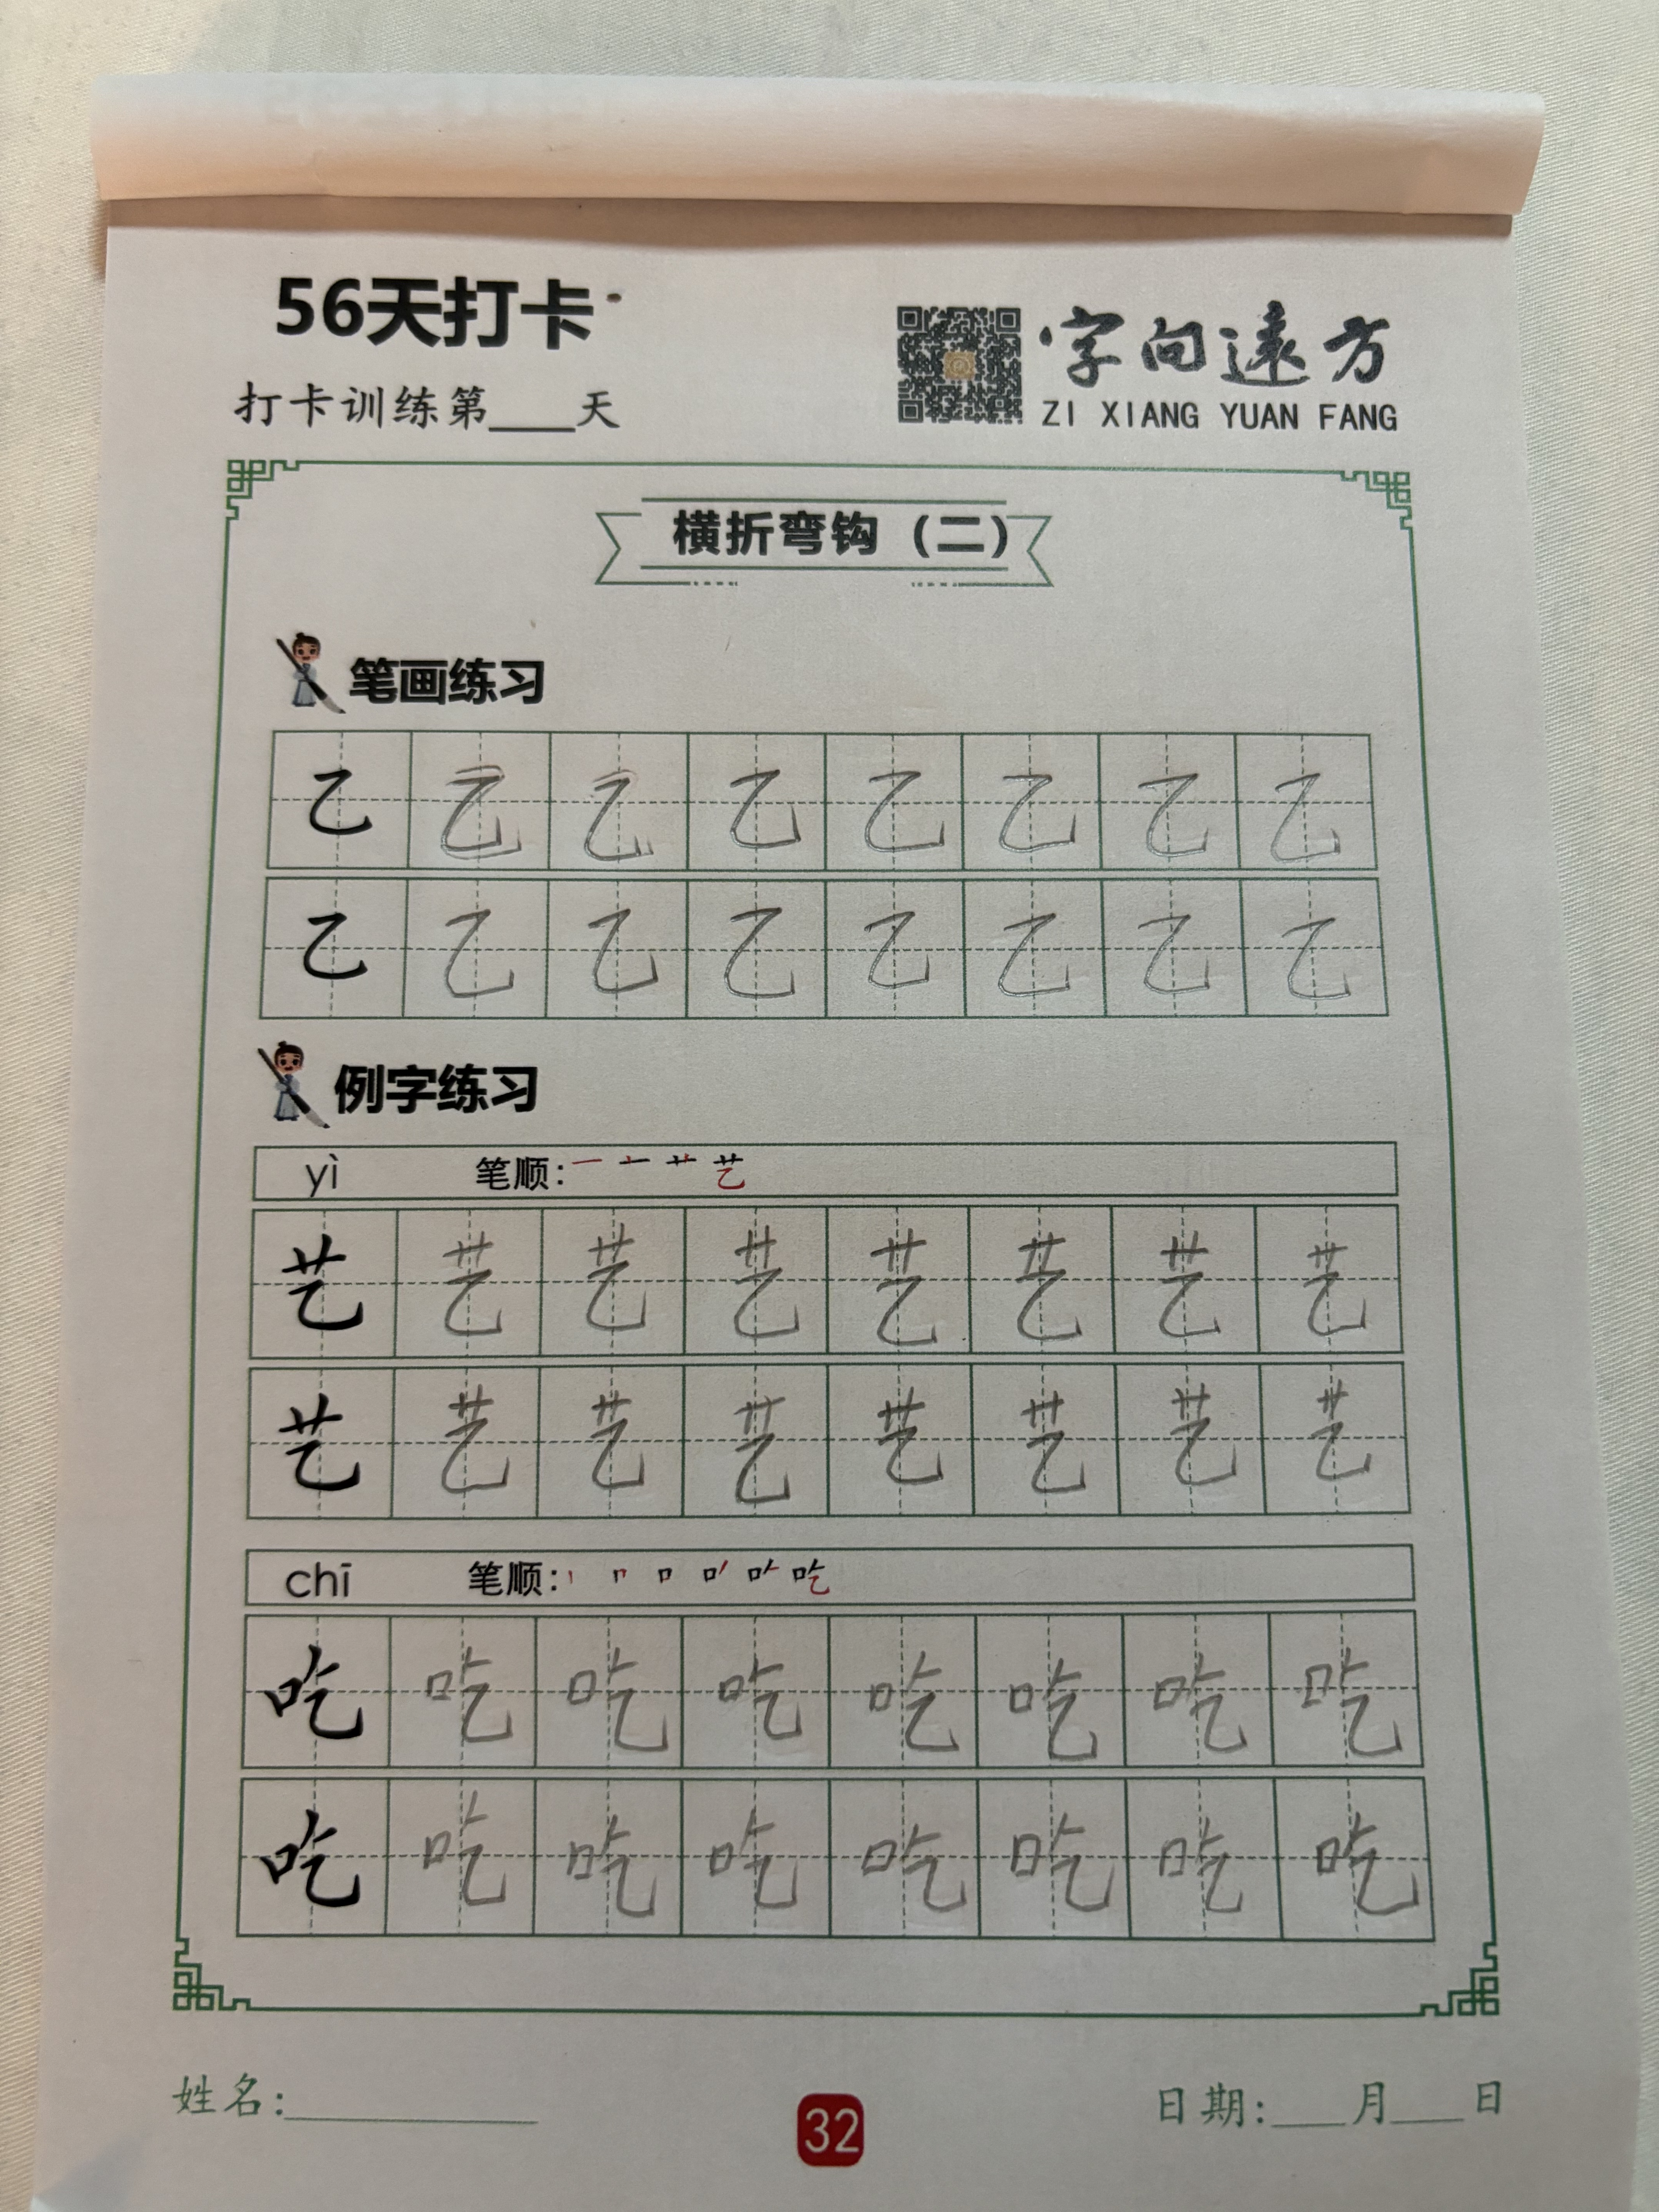 56天打卡
打卡训练第___天
字向远方
ZI XIANG YUAN FANG
横折弯钩（二）
笔画练习
乙 乙 乙 乙 乙 乙 乙 乙
乙 乙 乙 乙 乙 乙 乙 乙
例字练习
yì 笔顺: 一 十 艹 艺
艺 艺 艺 艺 艺 艺 艺 艺
艺 艺 艺 艺 艺 艺 艺 艺
chī 笔顺: 丨 冂 口 吃
吃 吃 吃 吃 吃 吃 吃 吃
吃 吃 吃 吃 吃 吃 吃 吃
姓名:___________ 32 日期:___月___日